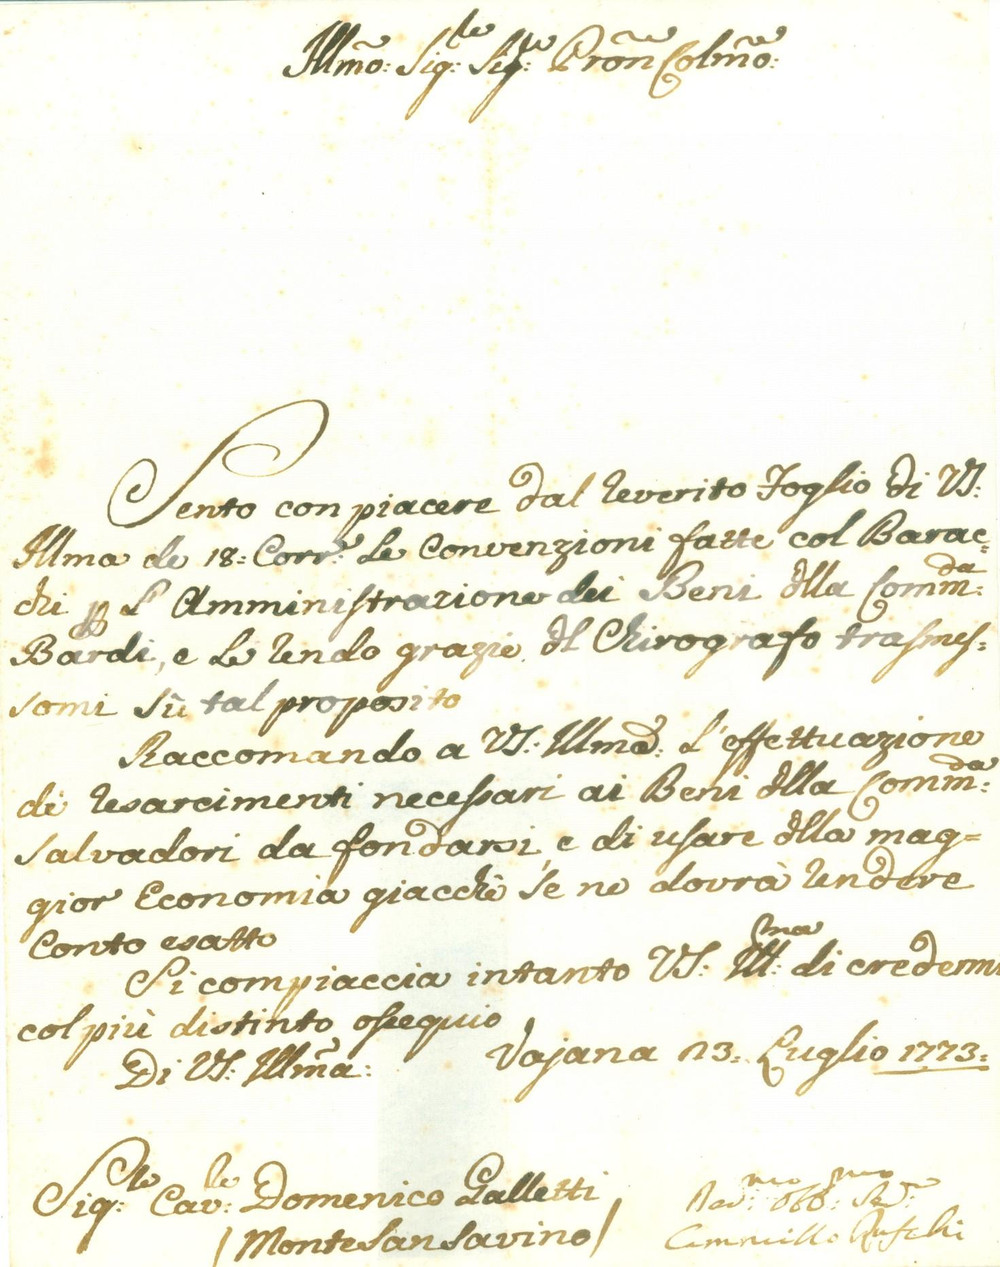 Illmo: Sigre: Sigre Prone Colmo:
Sento con piacere dal reverito Foglio di VS:
Illma de 18: Corre: le Convenzioni fatte col Barac=
chi p L'Amministrazione dei Beni della Commda:
Bardi, e Le rendo grazie del Chirografo trasmes=
somi sù tal proposito
Raccomando a VS: Illma: L'effettuazione
di resarcimenti necessari ai Beni della Commda:
Salvadori da fondarsi, e di usare della mag=
gior Economia giacchè se ne dovrà rendere
Conto esatto
Si compiaccia intanto VS: Illma: di credermi
col più distinto ossequio
Di VS: Illma: Vajana 23: Luglio 1773:
Sigre: Cavre: Domenico Galletti
/Monte San Savino/
Devmo: Obbmo: Serre:
Cammillo Ruschi